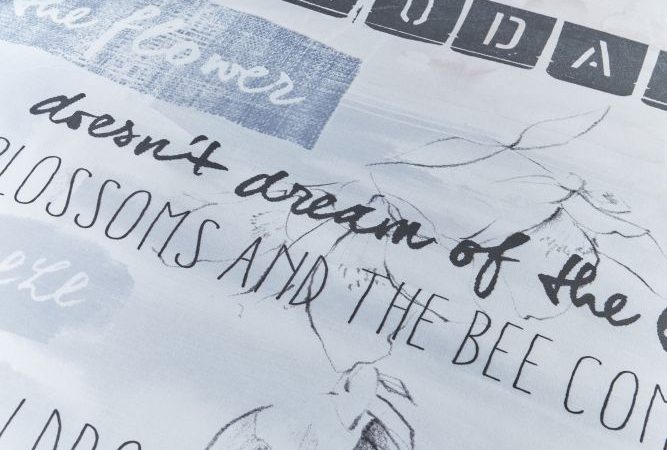 UDA
the flower
doesn't dream of the
BLOSSOMS AND THE BEE COM